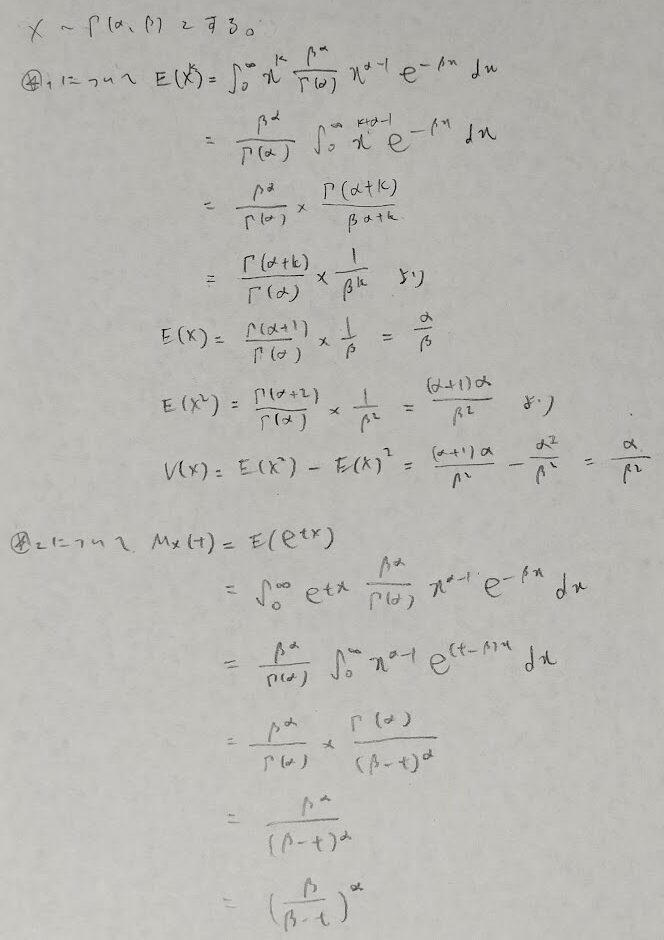 X ~ Γ(α, β) とする。
※1について E(X^k) = ∫_0^∞ x^k β^α/Γ(α) x^{α-1} e^{-βx} dx
= β^α/Γ(α) ∫_0^∞ x^{k+α-1} e^{-βx} dx
= β^α/Γ(α) × Γ(α+k)/β^{α+k}
= Γ(α+k)/Γ(α) × 1/β^k より
E(X) = Γ(α+1)/Γ(α) × 1/β = α/β
E(X²) = Γ(α+2)/Γ(α) × 1/β² = (α+1)α/β² より
V(X) = E(X²) - E(X)² = (α+1)α/β² - α²/β² = α/β²
※2について Mx(t) = E(e^{tx})
= ∫_0^∞ e^{tx} β^α/Γ(α) x^{α-1} e^{-βx} dx
= β^α/Γ(α) ∫_0^∞ x^{α-1} e^{(t-β)x} dx
= β^α/Γ(α) × Γ(α)/(β-t)^α
= β^α/(β-t)^α
= (β/(β-t))^α